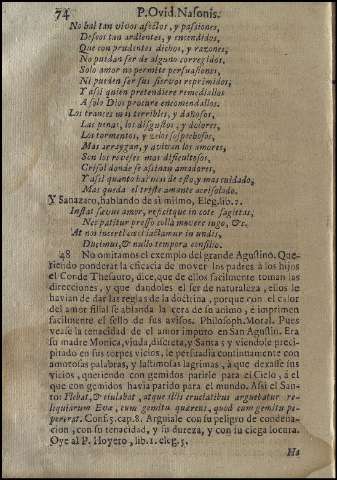 74 P. Ovid. Nasonis.
No hal tan vivos afectos, y passiones,
Deseos tan ardientes, y encendidos,
Que con prudentes dichos, y razones,
No puedan ser de alguno corregidos.
Solo amor no permite persuasiones,
Ni pueden ser sus siervos reprimidos,
Y assi quien pretendiere remediallos
A solo Dios procure encomendallos.
Los trances mas terribles, y dañosos,
Las penas, los disgustos, y dolores,
Los tormentos, y zelos sospechosos,
Mas arraygan, y avivan los amores,
Son los reveses mas dificultosos,
Crisol donde se afinan amadores,
Y assi quanto hai mas de esto, y mas cuidado,
Mas queda el triste amante acrisolado.
Y Sanazaro, hablando de si mismo, Eleg. lib. 2.
Instat sævus amor, reficitque in cote sagittas,
Nec patitur presso colla movere iugo, &c.
At nos incerti iactamur in undis,
Ducimus, & nullo tempora consilio.
48 No omitamos el exemplo del grande Agustino. Que-
riendo ponderar la eficacia de mover los padres à los hijos
el Conde Thesauro, dice, que de ellos facilmente toman las
direcciones, y que dandoles el ser de naturaleza, ellos le
havian de dar las reglas de la doctrina, porque con el calor
del amor filial se ablanda la cera de su animo, è imprimen
facilmente el sello de sus avisos. Philosoph. Moral. Pues
vease la tenacidad de el amor impuro en San Agustin. Era
su madre Monica, viuda, discreta, y Santa; y viendole preci-
pitado en sus torpes vicios, le persuadia continuamente con
amorosas palabras, y lastimosas lagrimas, à que dexasse sus
vicios, queriendo con gemidos parirle para el Cielo, à el
que con gemidos havia parido para el mundo. Assi el San-
to: Flebat, & eiulabat, atque illis cruciatibus arguebatur re-
liquiarum Evæ, cum gemitu quærens, quod cum gemitu pe-
pererat. Conf. 5. cap. 8. Arguiale con su peligro de condena-
cion, con su tenacidad, y su dureza, y con su ciega locura.
Oye al P. Hoyero, lib. 1. eleg. 5.
Ha